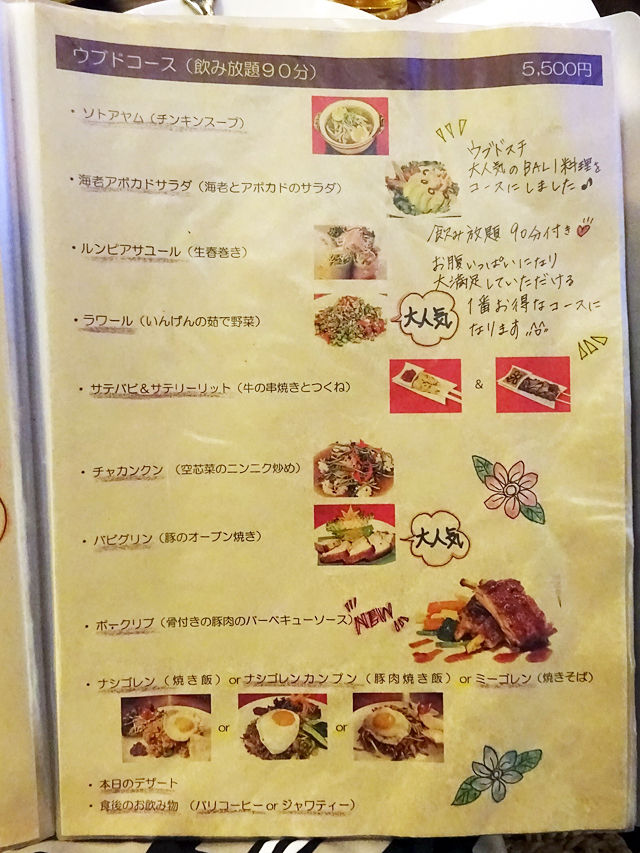 ウブドコース（飲み放題９０分） 5,500円
・ソトアヤム（チンキンスープ）
・海老アボカドサラダ（海老とアボカドのサラダ）
ウブドスチ
大人気のBALI料理を
コースにしました♪
飲み放題 90分付き♡
お腹いっぱいになり
大満足していただける
1番お得なコースに
なります
・ルンピアサユール（生春巻き）
・ラワール（いんげんの茹で野菜）
大人気
・サテバビ＆サテリーリット（牛の串焼きとつくね）
&
・チャカンクン （空芯菜のニンニク炒め）
・バビグリン（豚のオーブン焼き）
大人気
・ポークリブ（骨付きの豚肉のバーベキューソース）
NEW
・ナシゴレン（焼き飯）orナシゴレンカンプン（豚肉焼き飯）orミーゴレン（焼きそば）
or or
・本日のデザート
・食後のお飲み物 （バリコーヒー or ジャワティー）